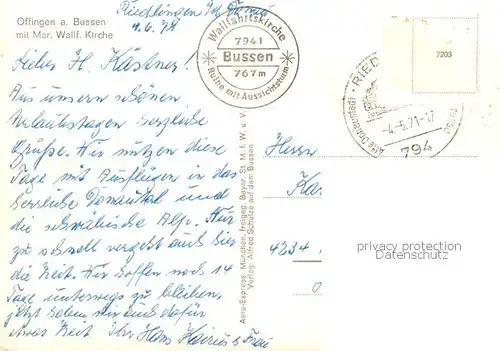 Offingen a. Bussen
mit Mar. Wallf. Kirche
Riedlingen Donau
4.6.71
Lieber H. Kästner!
Aus unseren schönen
Urlaubstagen herzliche
Grüße. Wir nutzen diese
Tage mit Ausflügen in das
herrliche Donautal und
die schwäbische Alp. Nur
zu schnell vergeht auch hier
die Zeit. Wir hoffen noch 14
Tage unterwegs zu bleiben,
jetzt haben wir auch dafür
etwas Zeit. Ihr Hans u. Frau
Wallfahrtskirche
7941
Bussen
767m
Ruine mit Aussichtsturm
Aero-Express, München, freigeg. Bayer. St. M. f. W. u. V.
Verlag: Alfred Schulze auf dem Bussen
7203
RIED
Alte Donaustadt
-4.-6.71-17
794
Herrn
Ka
4234
privacy protection
Datenschutz